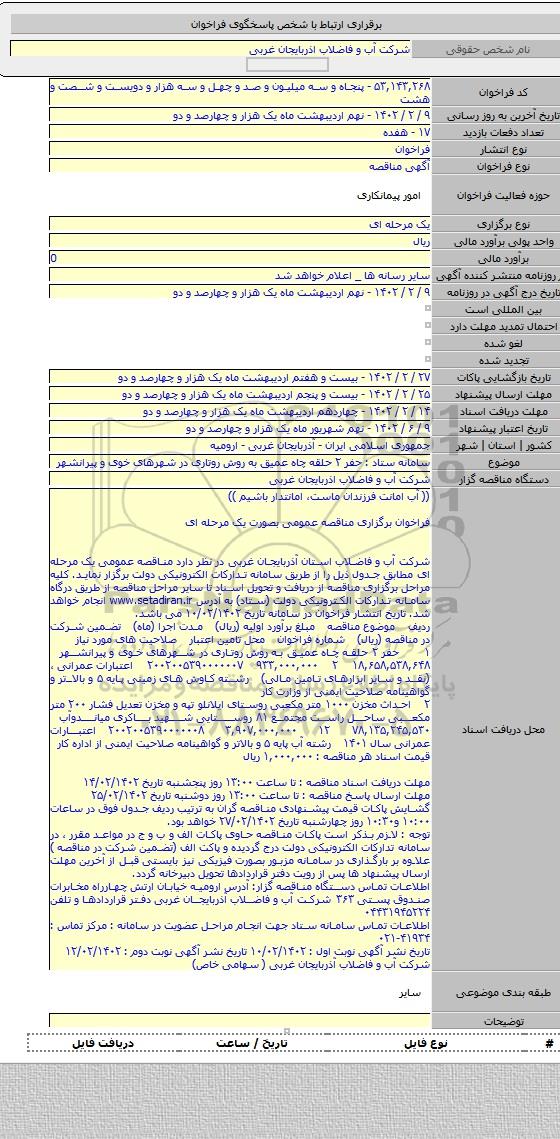 برقراری ارتباط با شخص پاسخگوی فراخوان
نام شخص حقوقی شرکت آب و فاضلاب آذربایجان غربی
کد فراخوان ۵۳,۱۴۳,۲۶۸ - پنجاه و سه میلیون و صد و چهل و سه هزار و دویست و شصت و هشت
تاریخ آخرین به روز رسانی ۹ / ۲ / ۱۴۰۲ - نهم اردیبهشت ماه یک هزار و چهارصد و دو
تعداد دفعات بازدید ۱۷ - هفده
نوع انتشار فراخوان
نوع فراخوان آگهی مناقصه
حوزه فعالیت فراخوان امور پیمانکاری
نوع برگزاری یک مرحله ای
واحد پولی برآورد مالی ریال
برآورد مالی 0
روزنامه منتشر کننده آگهی سایر رسانه ها _ اعلام خواهد شد
تاریخ درج آگهی در روزنامه ۹ / ۲ / ۱۴۰۲ - نهم اردیبهشت ماه یک هزار و چهارصد و دو
بین المللی است
احتمال تمدید مهلت دارد
لغو شده
تجدید شده
تاریخ بازگشایی پاکات ۲۷ / ۲ / ۱۴۰۲ - بیست و هفتم اردیبهشت ماه یک هزار و چهارصد و دو
مهلت ارسال پیشنهاد ۲۵ / ۲ / ۱۴۰۲ - بیست و پنجم اردیبهشت ماه یک هزار و چهارصد و دو
مهلت دریافت اسناد ۱۴ / ۲ / ۱۴۰۲ - چهاردهم اردیبهشت ماه یک هزار و چهارصد و دو
تاریخ اعتبار پیشنهاد ۹ / ۶ / ۱۴۰۲ - نهم شهریور ماه یک هزار و چهارصد و دو
کشور | استان | شهر جمهوری اسلامی ایران - آذربایجان غربی - ارومیه
موضوع سامانه ستاد : حفر ۲ حلقه چاه عمیق به روش روتاری در شهرهای خوی و پیرانشهر
دستگاه مناقصه گزار شرکت آب و فاضلاب آذربایجان غربی
محل دریافت اسناد
(( آب امانت فرزندان ماست، امانتدار باشیم ))
فراخوان برگزاری مناقصه عمومی بصورت یک مرحله ای
شرکت آب و فاضلاب استان آذربایجان غربی در نظر دارد مناقصه عمومی یک مرحله
ای مطابق جدول ذیل را از طریق سامانه تدارکات الکترونیکی دولت برگزار نماید. کلیه
مراحل برگزاری مناقصه از دریافت و تحویل اسناد تا سایر مراحل مناقصه از طریق درگاه
سامانه تدارکات الکترونیکی دولت (ستاد) به آدرس www.setadiran.ir انجام خواهد
شد. تاریخ انتشار فراخوان در سامانه تاریخ ۱۰/۰۲/۱۴۰۲ می باشد.
ردیف موضوع مناقصه مبلغ برآورد اولیه (ریال) مدت اجرا (ماه) تضمین شرکت
در مناقصه (ریال) شماره فراخوان محل تامین اعتبار صلاحیت های مورد نیاز
۱ حفر ۲ حلقه چاه عمیق به روش روتاری در شهرهای خوی و پیرانشهر
۱۸,۶۵۸,۵۳۸,۶۴۸ ۲ ۹۳۳,۰۰۰,۰۰۰ ۲۰۰۲۰۰۵۳۹۰۰۰۰۰۰۷ اعتبارات عمرانی ،
(نقد و سایر ابزارهای تامین مالی) رشته کاوش های زمینی پایه ۵ و بالاتر و
گواهینامه صلاحیت ایمنی از وزارت کار
۲ احداث مخزن ۱۰۰۰ متر مکعبی روستای ایلانلو تپه و مخزن تعدیل فشار ۲۰۰ متر
مکعبی ساحل راست مجتمع ۸۱ روستایی شهید باکری میاندوآب
۷۸,۱۳۵,۲۴۵,۵۳۰ ۱۲ ۳,۹۰۷,۰۰۰,۰۰۰ ۲۰۰۲۰۰۵۳۹۰۰۰۰۰۸ اعتبارات
عمرانی سال ۱۴۰۱ رشته آب پایه ۵ و بالاتر و گواهینامه صلاحیت ایمنی از اداره کار
قیمت اسناد هر مناقصه : ۱,۰۰۰,۰۰۰ ریال
مهلت دریافت اسناد مناقصه : تا ساعت ۱۳:۰۰ روز پنجشنبه تاریخ ۱۴/۰۲/۱۴۰۲
مهلت ارسال پاسخ مناقصه : تا ساعت ۱۳:۰۰ روز دوشنبه تاریخ ۲۵/۰۲/۱۴۰۲
گشایش پاکات قیمت پیشنهادی مناقصه گران به ترتیب ردیف جدول فوق در ساعات
۱۰:۰۰ و ۱۰:۳۰ روز چهارشنبه تاریخ ۲۷/۰۲/۱۴۰۲ خواهد بود.
توجه : لازم بذکر است پاکات مناقصه حاوی پاکات الف و ب و ج در مواعد مقرر ، در
سامانه تدارکات الکترونیکی دولت درج گردیده و پاکت الف (تضمین شرکت در مناقصه )
علاوه بر بارگذاری در سامانه مزبور بصورت فیزیکی نیز بایستی قبل از آخرین مهلت
ارسال پیشنهاد ها پس از رویت دفتر قراردادها تحویل دبیرخانه گردد.
اطلاعات تماس دستگاه مناقصه گزار: آدرس ارومیه خیابان ارتش چهارراه مخابرات
صندوق پستی ۳۶۳ شرکت آب و فاضلاب آذربایجان غربی دفتر قراردادها و تلفن
۰۴۴۳۱۹۴۵۲۲۴
اطلاعات تماس سامانه ستاد جهت انجام مراحل عضویت در سامانه : مرکز تماس :
۰۲۱-۴۱۹۳۴
تاریخ نشر آگهی نوبت اول : ۱۰/۰۲/۱۴۰۲ تاریخ نشر آگهی نوبت دوم : ۱۲/۰۲/۱۴۰۲
شرکت آب و فاضلاب آذربایجان غربی ( سهامی خاص)
طبقه بندی موضوعی سایر
توضیحات
# نوع فایل تاریخ / ساعت دریافت فایل